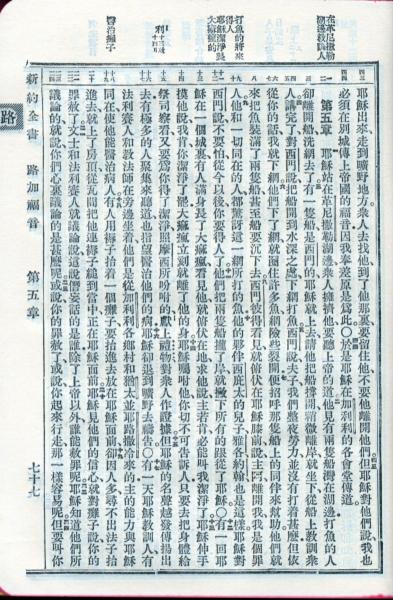 在革尼撒勒湖邊教訓人
打魚的將來得人
耶穌潔淨長大痲瘋的
利十三章十四章
醫治癱子
耶穌出來走到曠野地方衆人去找他到了他那裏要留住他不要他離開他們但耶穌對他們說我也
必須在別城傳上帝國的福音因我奉差原是爲此〇於是耶穌在加利利的各會堂傳道
第五章 耶穌站在革尼撒勒湖邊衆人擁擠他要聽上帝的道他見有兩隻船灣在湖邊打魚的人
卻離開船洗網去了有一隻船是西門的耶穌就上去請他把船撐開稍微離岸就坐下從船上教訓衆
人講完了對西門說把船開到水深之處下網打魚西門說夫子我們整夜勞力並沒有打着甚麼但依
從你的話我就下網他們下了網就圈住許多魚網險些裂開便招呼那隻船上的同伴來幫助他們就
來把魚裝滿了兩隻船甚至船要沉下去西門彼得看見就俯伏在耶穌膝前說主阿離開我我是個罪
人他和一切同在的人都驚訝這一網所打的魚他的夥伴西庇太的兒子雅各約翰也是這樣耶穌對
西門說不要怕從今以後你要得人了他們把兩隻船攏了岸就撇下所有的跟從了耶穌〇有一回耶
穌在一個城裏有人滿身長了大痲瘋看見他就俯伏在地求他說主若肯必能叫我潔淨了耶穌伸手
摸他說我肯你潔淨了罷大痲瘋立刻就離了他的身耶穌囑咐他你切不可告訴人只要去把身體給
祭司察看又要爲你得了潔淨照摩西所吩咐的獻上禮物對衆人作證據但耶穌的名聲越發傳揚出
去有極多的人聚集來聽道也指望醫治他們的病耶穌卻退到曠野去禱告〇有一天耶穌教訓人有
法利賽人和教法師在旁邊坐着他們是從加利利各鄉村和猶太並耶路撒冷來的主的能力與耶穌
同在使他能醫治病人有人用褥子抬着一個癱子要抬進去放在耶穌面前卻因人多尋不出法子抬
進去就上了房頂從瓦間把他連褥子縋到當中正在耶穌面前耶穌見他們的信心就對癱子說你的
罪赦了文士和法利賽人就議論說這說僭妄話的是誰除了上帝以外誰能赦罪呢耶穌知道他們所
議論的就說你們心裏議論的是甚麼呢或說你的罪赦了或說你起來行走那一樣容易呢但要叫你
新約全書 路加福音 第五章 七十七
路